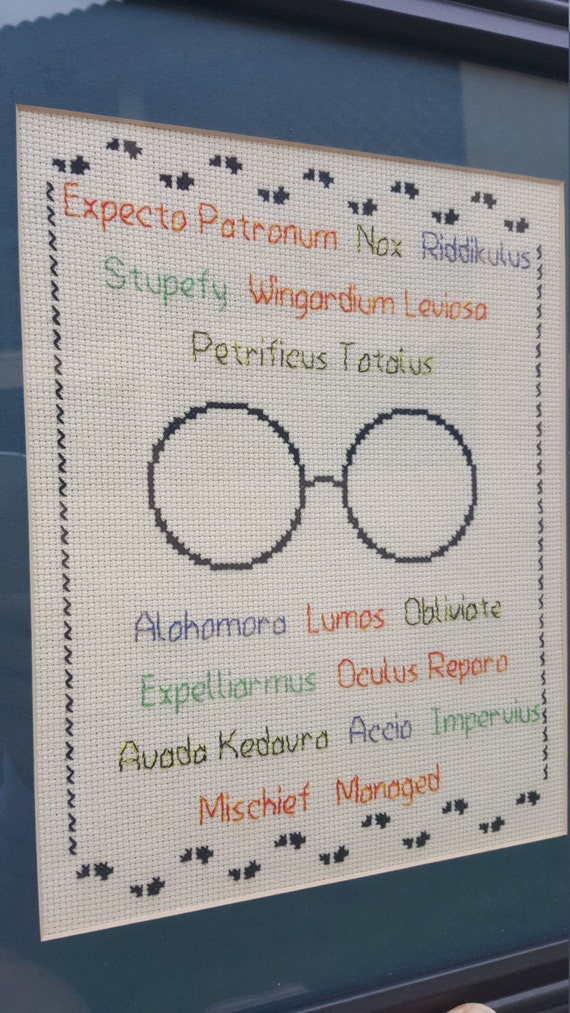 Expecto Patronum Nox Riddikulus
Stupefy Wingardium Leviosa
Petrificus Totalus
Alohomora Lumos Obliviate
Expelliarmus Oculus Reparo
Avada Kedavra Accio Impervius
Mischief Managed